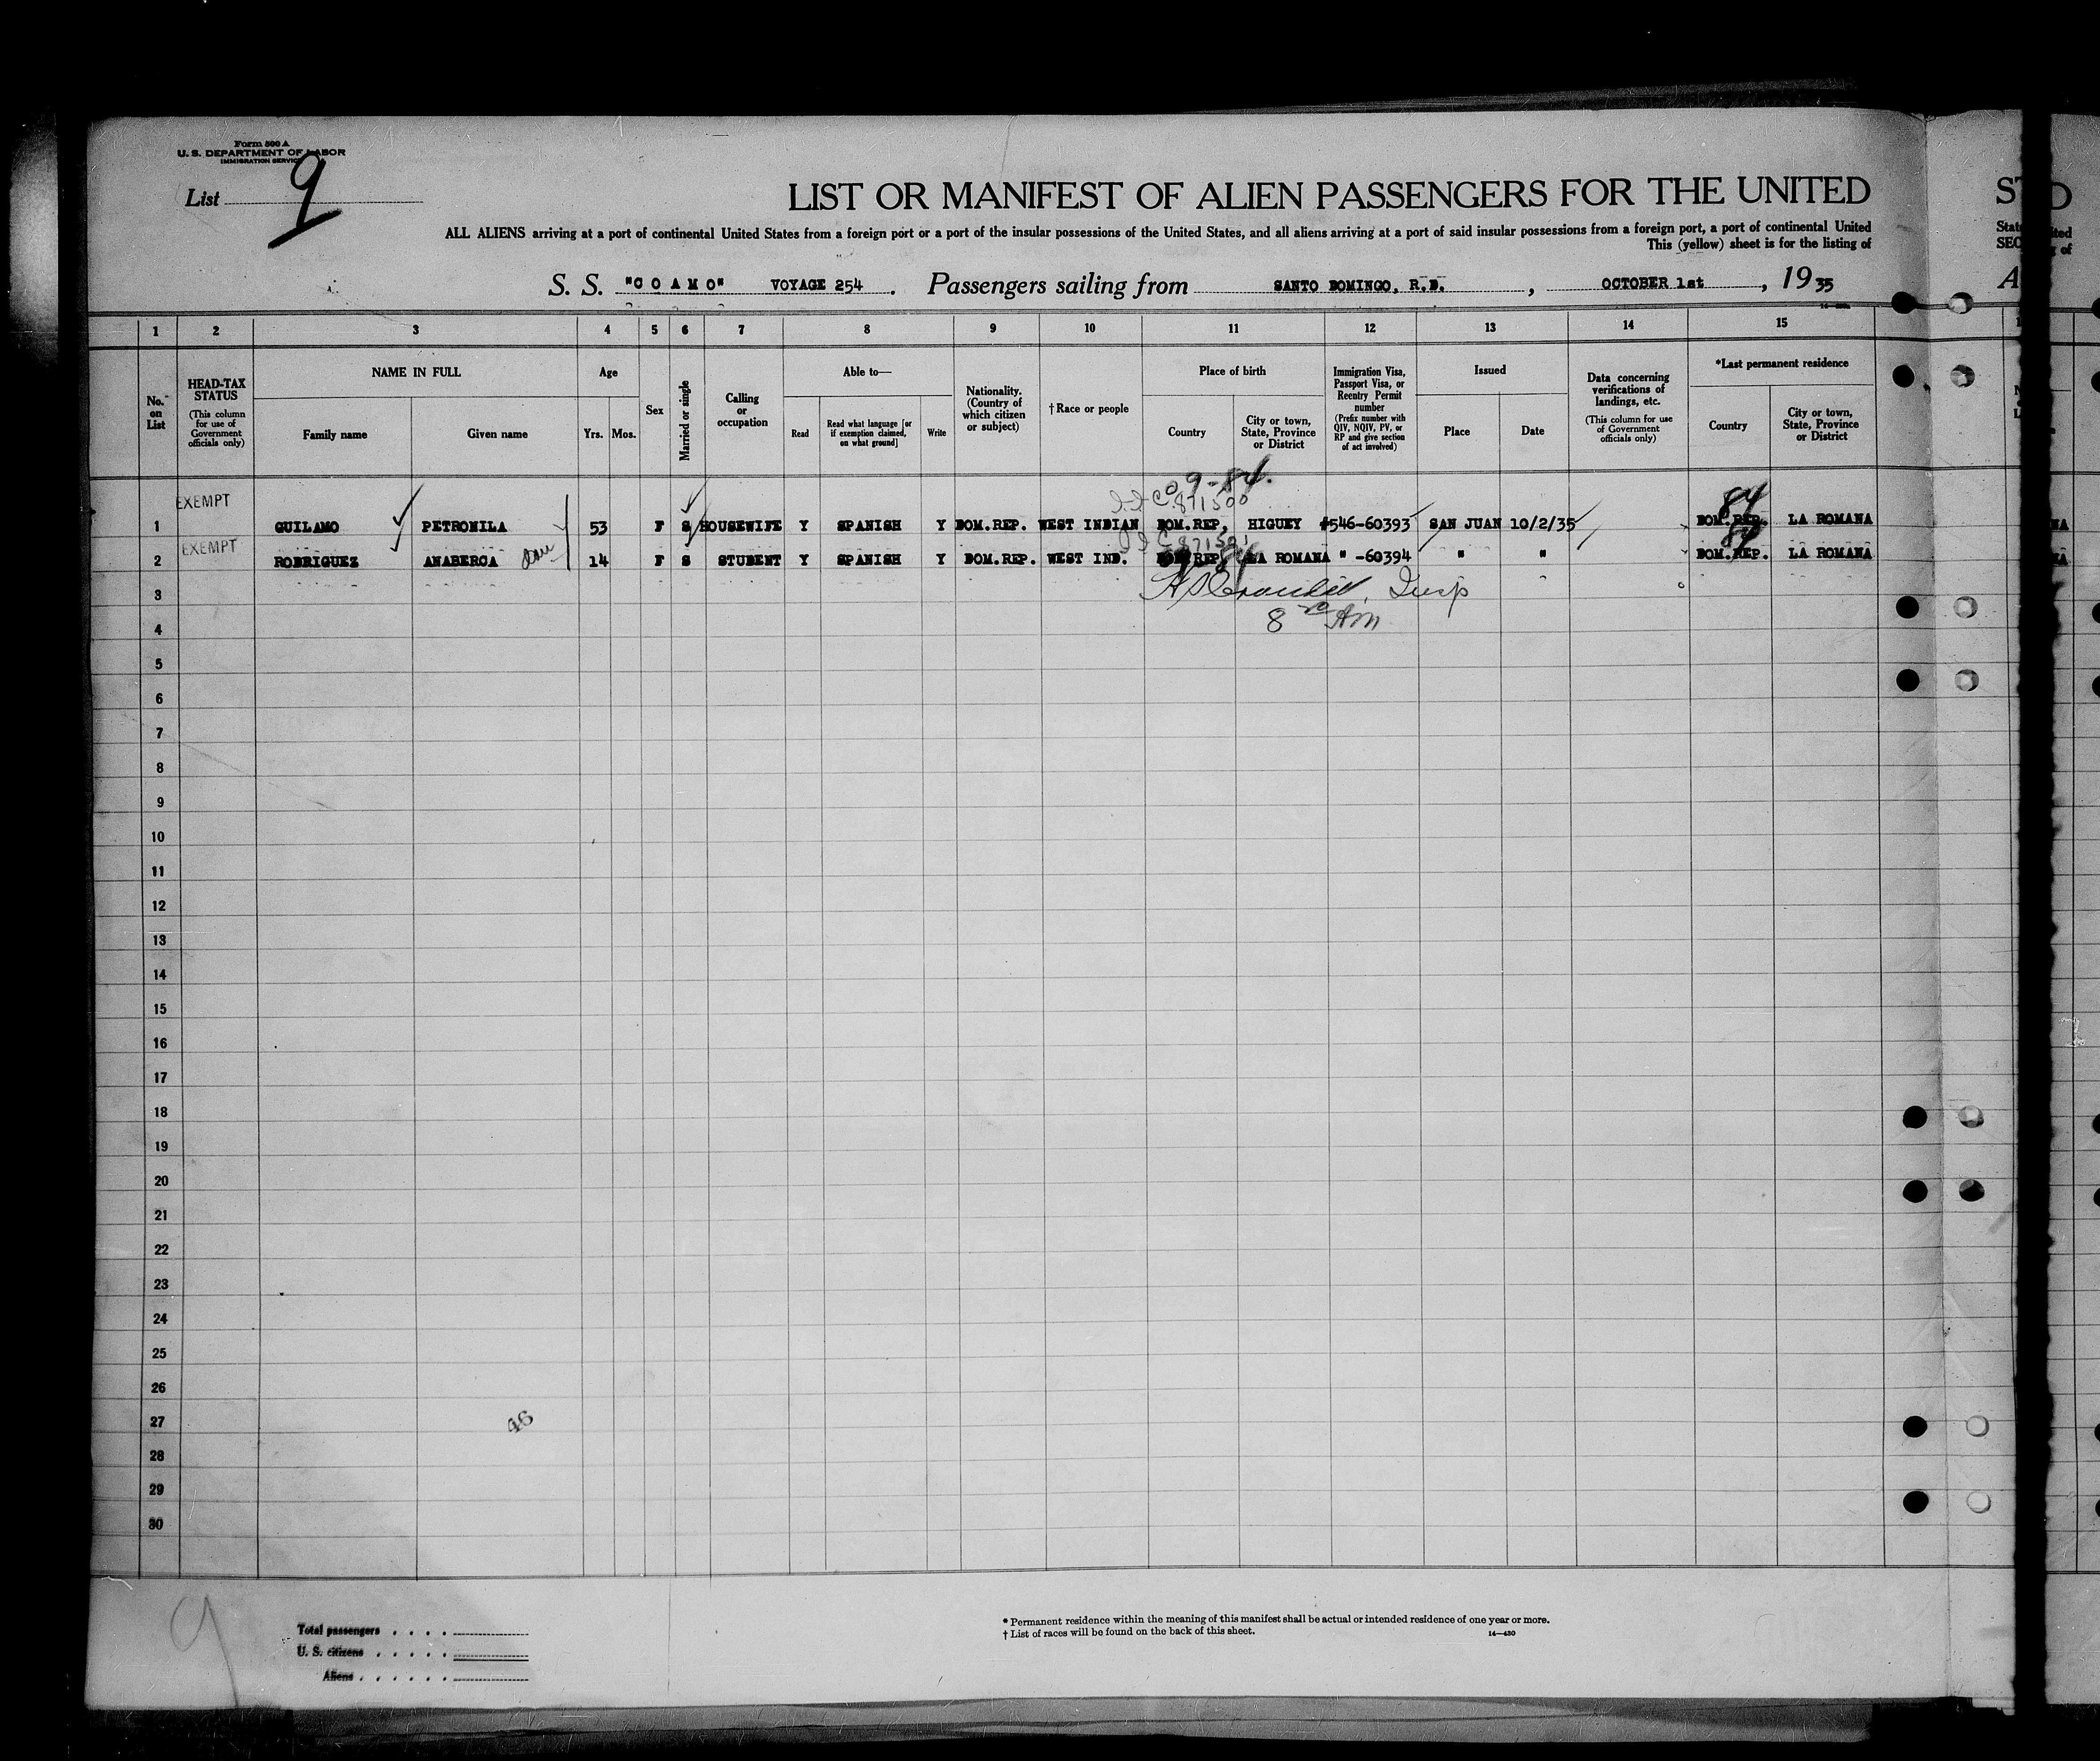 Form 500 A
U. S. DEPARTMENT OF LABOR
IMMIGRATION SERVICE
List 9
LIST OR MANIFEST OF ALIEN PASSENGERS FOR THE UNITED
ALL ALIENS arriving at a port of continental United States from a foreign port or a port of the insular possessions of the United States, and all aliens arriving at a port of said insular possessions from a foreign port, a port of continental United
This (yellow) sheet is for the listing of
S. S. "COAMO" VOYAGE 254 . Passengers sailing from SANTO DOMINGO, R.D. , OCTOBER 1st , 19 35
1 2 3 4 5 6 7 8 9 10 11 12 13 14 15
No. on List
HEAD-TAX STATUS (This column for use of Government officials only)
NAME IN FULL
Family name Given name
Age
Yrs. Mos.
Sex
Married or single
Calling or occupation
Able to—
Read Read what language [or if exemption claimed, on what ground] Write
Nationality. (Country of which citizen or subject)
† Race or people
Place of birth
Country City or town, State, Province or District
Immigration Visa, Passport Visa, or Reentry Permit number (Prefix number with QIV, NQIV, PV, or RP and give section of act involved)
Issued
Place Date
Data concerning verifications of landings, etc. (This column for use of Government officials only)
*Last permanent residence
Country City or town, State, Province or District
9-84.
871500
84
EXEMPT
1 GUILAMO PETRONILA 53 F S HOUSEWIFE Y SPANISH Y DOM.REP. WEST INDIAN DOM.REP. HIGUEY #546-60393 SAN JUAN 10/2/35 DOM.REP. LA ROMANA
871501
84
EXEMPT
2 RODRIGUEZ ANABERCA 14 F S STUDENT Y SPANISH Y DOM.REP. WEST IND. DOM.REP. LA ROMANA " -60394 " " DOM.REP. LA ROMANA
Insp
3
8 AM
4
5
6
7
8
9
10
11
12
13
14
15
16
17
18
19
20
21
22
23
24
25
26
27
46
28
29
30
9
Total passengers . . . .
U. S. citizens . . . . .
Aliens . . . . . .
* Permanent residence within the meaning of this manifest shall be actual or intended residence of one year or more.
† List of races will be found on the back of this sheet. 14—430